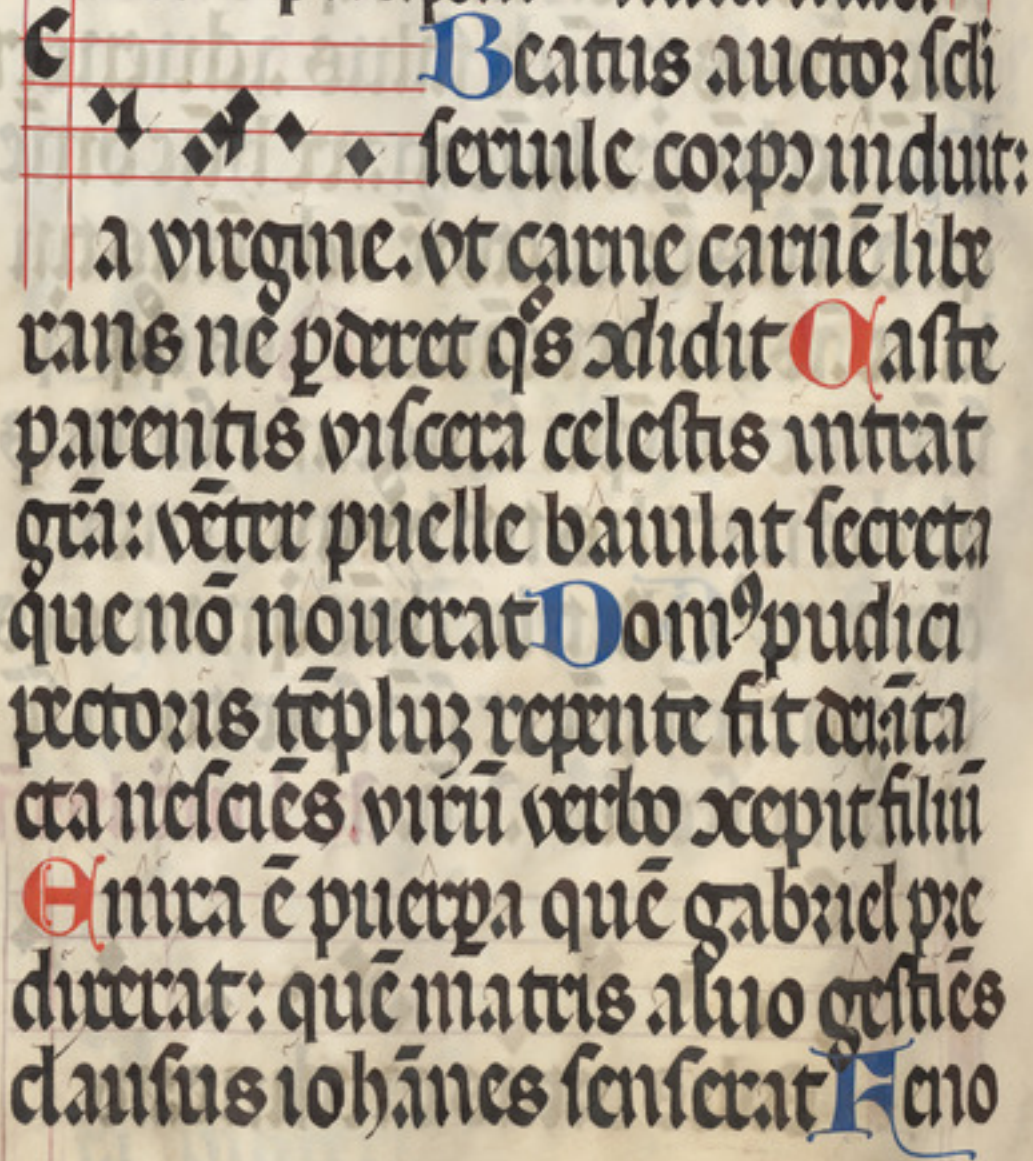 Beatus auctor scli
seruile corpꝰ induit:
a virgine. vt carne carnē libe
rans ne ꝑderet qͦs ꝯdidit Caste
parentis viscera celestis intrat
grā: vēter puelle baiulat secreta
que nō nouerat Domꝰ pudici
pectoris tēpluꝫ repente fit dei: īta
cta nesciēs virū verbo ꝯcepit filiū
Enixa ē puerꝑa quē gabriel pre
dixerat: quē matris aluo gestiēs
clausus iohānes senserat Feno